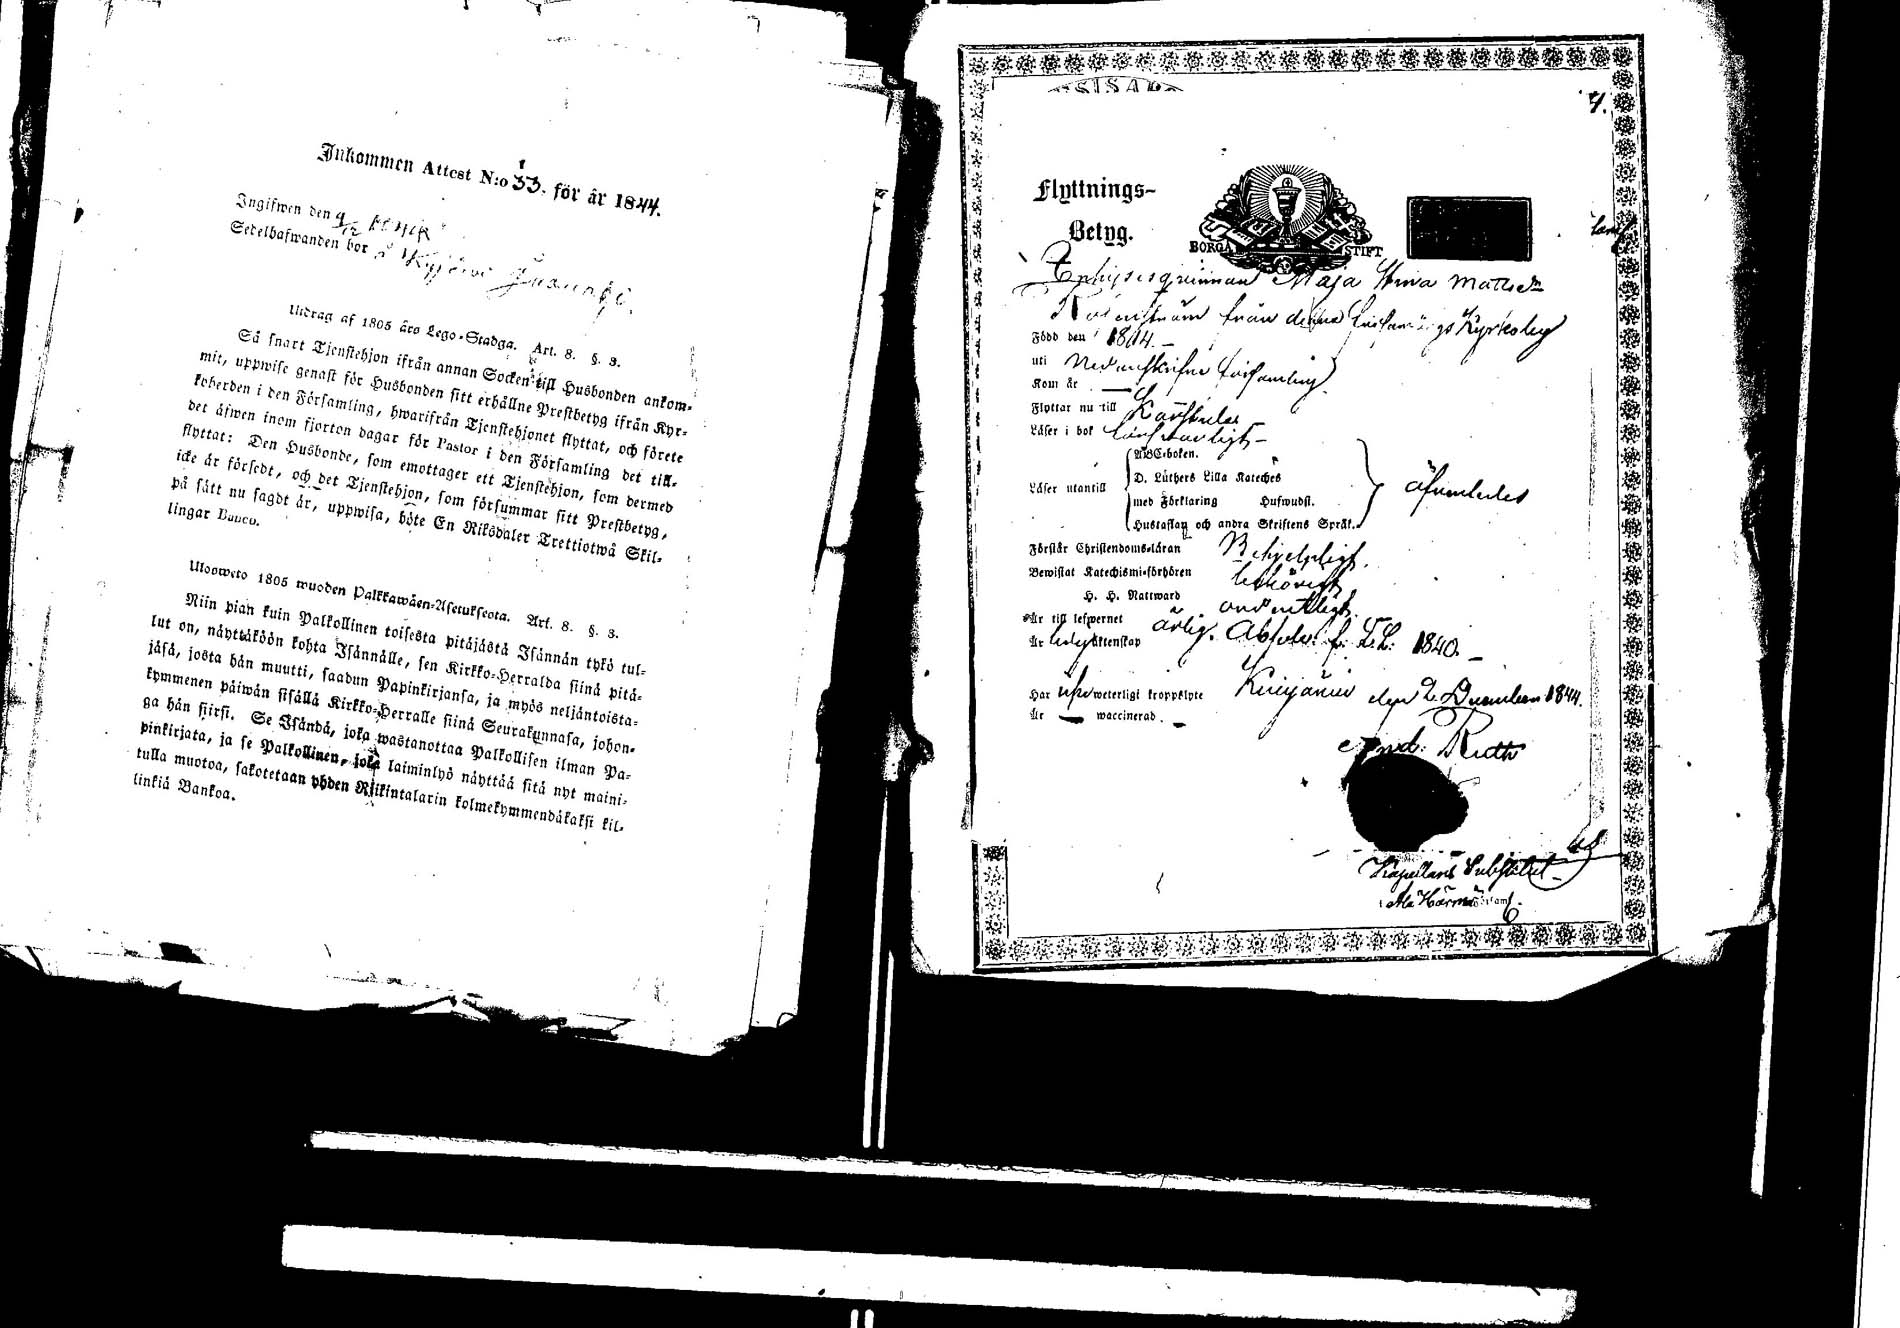 Inkommen Attest N:o 33. för år 1844.
Ingifwen den 9/12
Sedelhafwanden bor å Kyjärvi
Utdrag af 1805 års Lego-Stadga. Art. 8. §. 3.
Så snart Tjenstehjon ifrån annan Socken till Husbonden ankom-
mit, uppwise genast för Husbonden sitt erhållne Prestbetyg ifrån Kyr-
koherden i den Församling, hwarifrån Tjenstehjonet flyttat, och förete
det äfwen inom fjorton dagar för Pastor i den Församling det till-
flyttat: Den Husbonde, som emottager ett Tjenstehjon, som dermed
icke är försedt, och det Tjenstehjon, som försummar sitt Prestbetyg,
på sätt nu sagdt är, uppwisa, böte En Riksdaler Trettiotwå Skil-
lingar Banco.
Ulosweto 1805 wuoden Palkkawäen-Asetuksesta. Art. 8. §. 3.
Niin pian kuin Palkollinen toisesta pitäjästä Isännän tykö tul-
lut on, näyttäköön kohta Isännälle, sen Kirkko-Herralda siinä pitä-
jäsä, josta hän muutti, saadun Papinkirjansa, ja myös neljäntoista-
kymmenen päiwän sisällä Kirkko-Herralle siinä Seurakunnasa, johon-
ga hän siirsi. Se Isändä, joka wastanottaa Palkollisen ilman Pa-
pinkirjata, ja se Palkollinen, joka laiminlyö näyttää sitä nyt maini-
tulla muotoa, sakotetaan yhden Riikintalarin kolmekymmendäkaksi kil-
linkiä Bankoa.
4.
Flyttnings-
Betyg.
BORGÅ STIFT
Maja Stina Matts dr
från denna församlings Kyrkoby
Född den 1814.
uti församling
Kom år —
Flyttar nu till Karstula
Läser i bok försvarligt
ABC-boken.
D. Lüthers Lilla Kateches
Läser utantill
med Förklaring Hufwudst.
äfwenledes
Hustaflan och andra Skriftens Språk.
Förstår Christendoms-läran Behjelpligt.
Bewistat Katechismi-förhören behörigt
H. H. Nattward ordentligt.
Är till lefwernet ärlig. Absolv. f. L. L. 1840.
Är ledig äktenskap
Har weterligt kroppslyte
den 2 December 1844.
Är — waccinerad. —
And. Ruth
Kapellans Substitut
i Ala Härmä